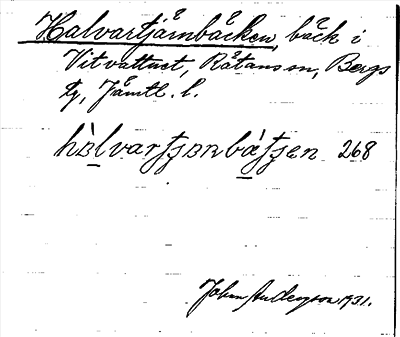 Halvartjärnbäcken, bäck i
Vitvattnet, Rätans sn, Bergs
tg, Jämtl. l.
268
John Andersson 1931.